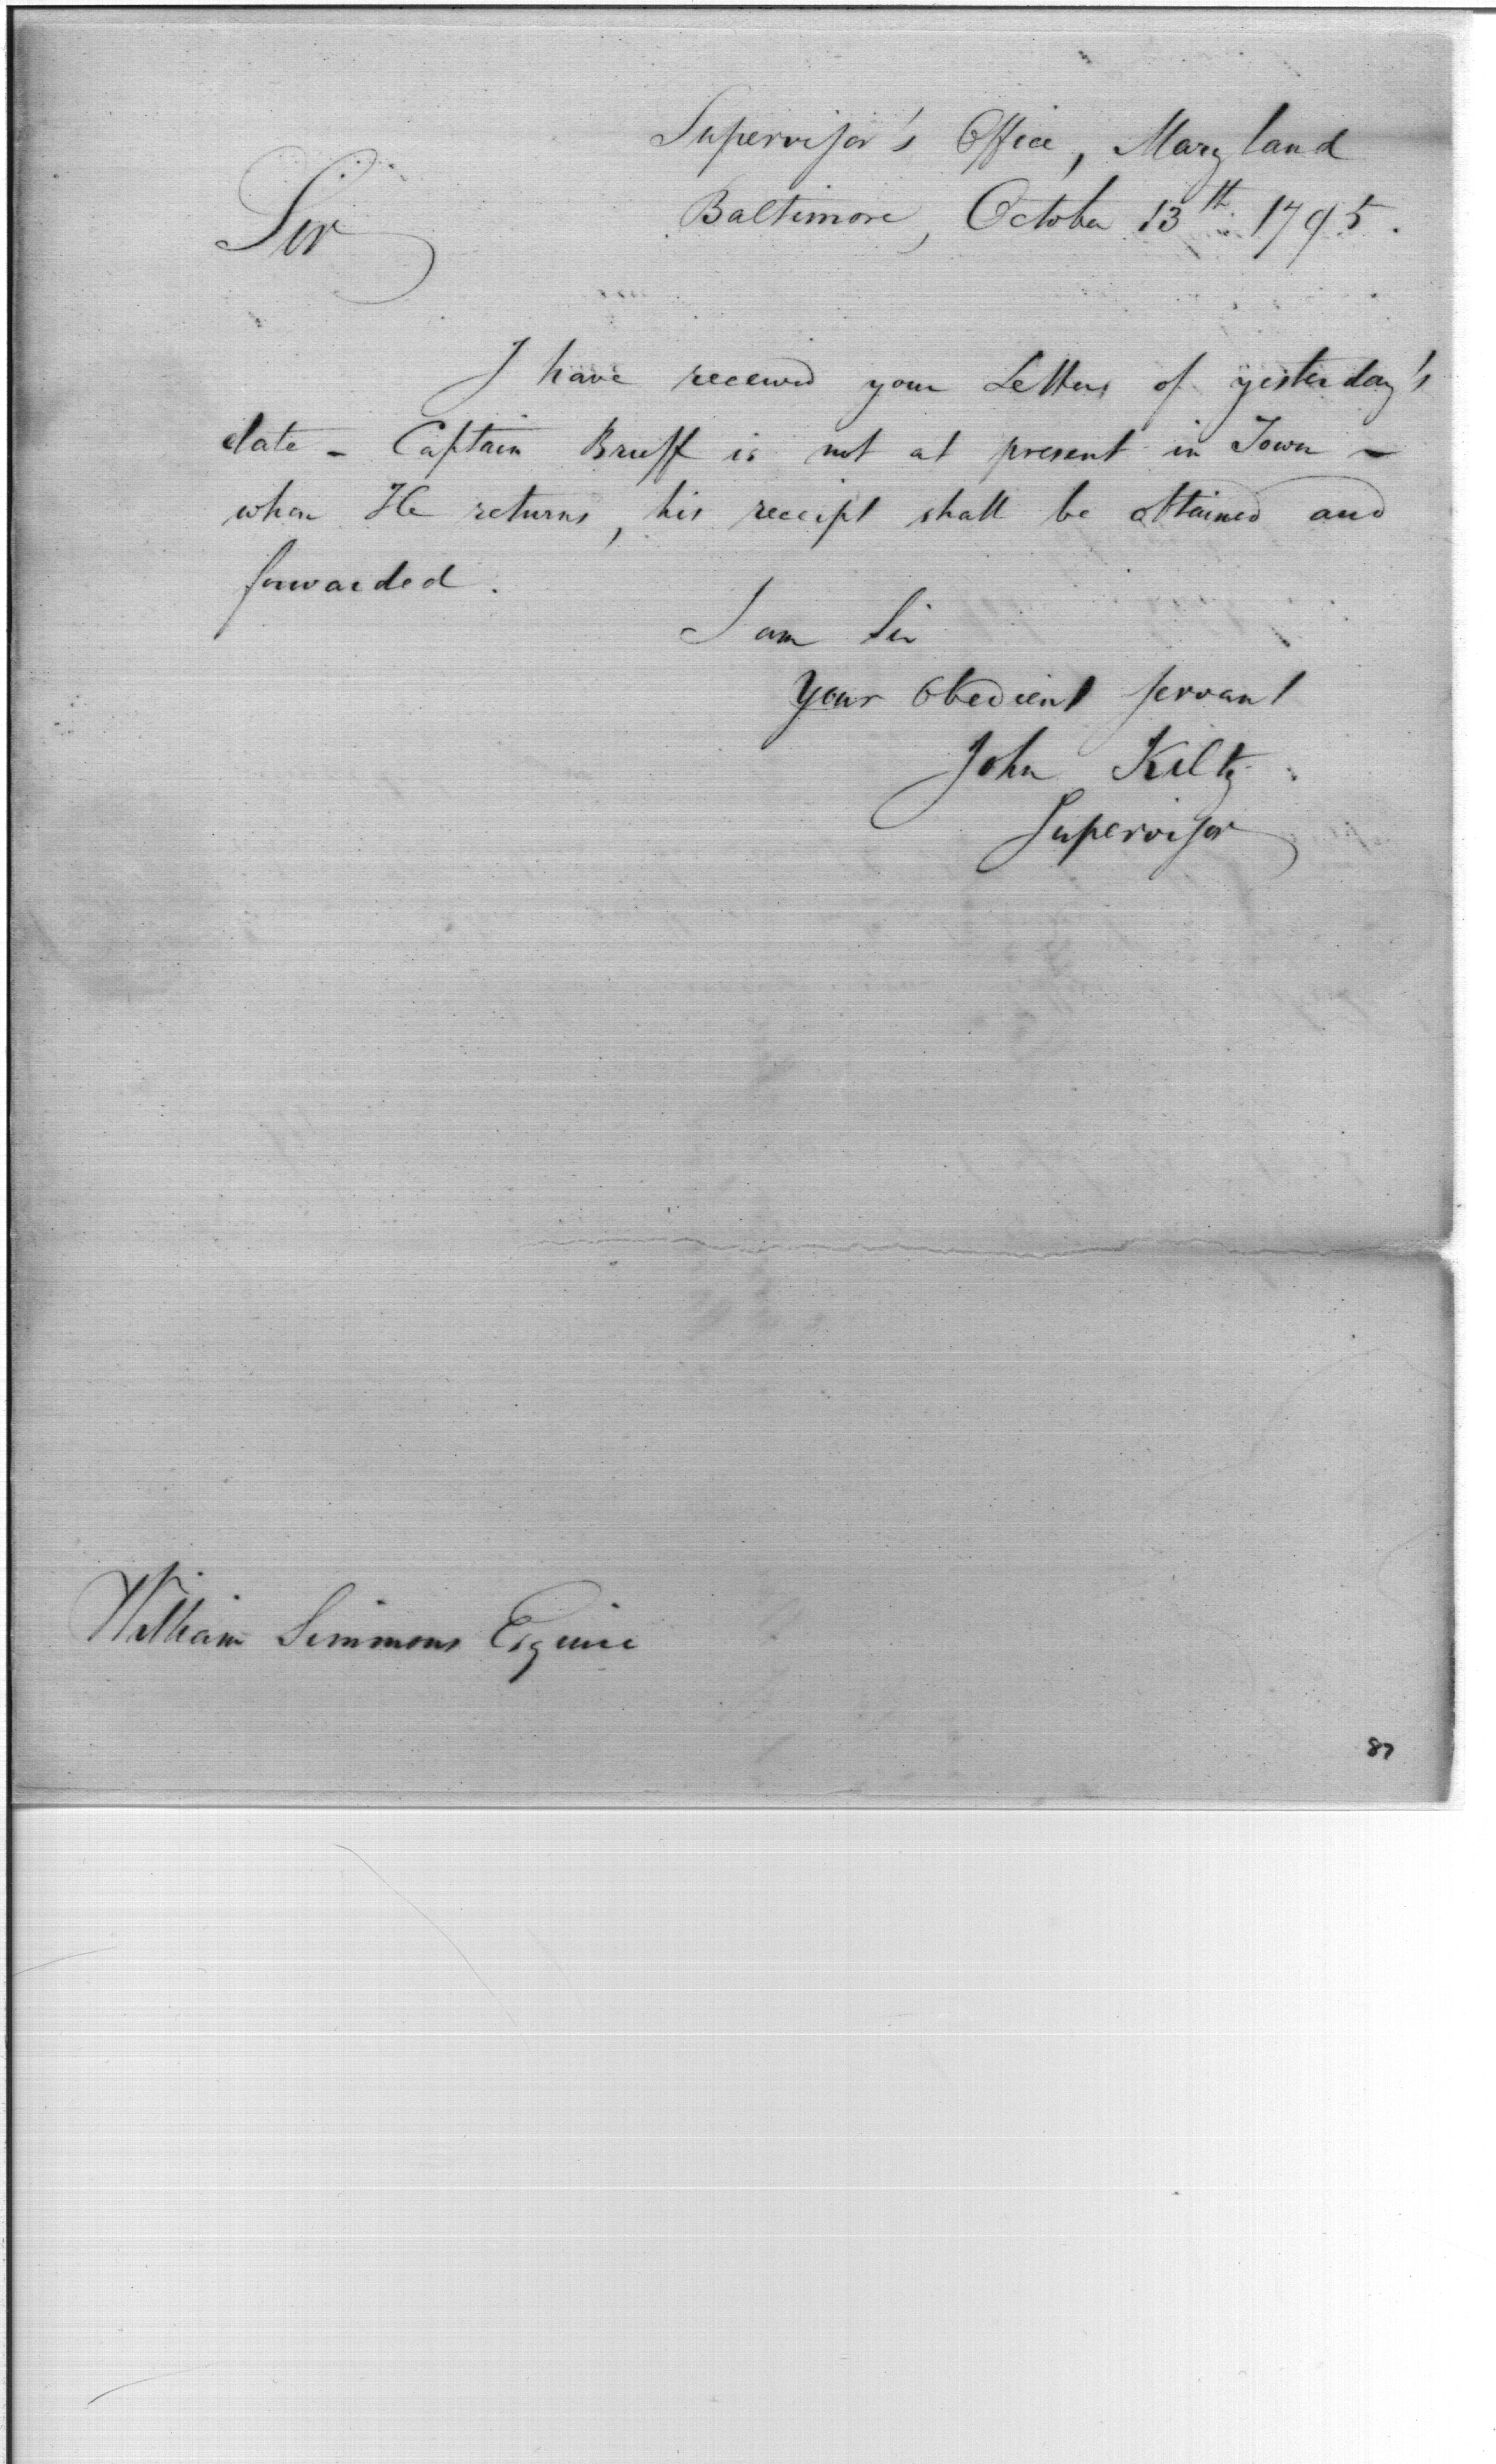 Supervisor's Office, Maryland
Baltimore, October 13th 1795.
Sir
I have received your Letters of yesterday's
date - Captain Bruff is not at present in Town -
when He returns, his receipt shall be obtained and
forwarded.
I am Sir
Your obedient servant
John Kilty.
Supervisor
William Simmons Esquire
87